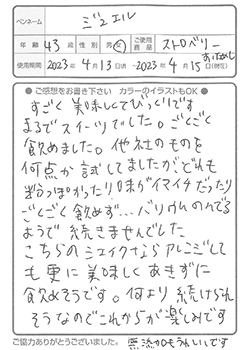 ペンネーム ジュエル
年齢 43 歳 性別 男・女 ご使用商品 ストロベリー
使用期間 2023年4月13日頃〜2023年4月15日(現在)
●ご感想をお書き下さい カラーのイラストもOK●
すごく美味しくてびっくりです
まるでスイーツでした。ごくごく
飲めました。他社のものを
何点か試してましたが、どれも
粉っぽかったり味がイマイチだったり
ごくごく飲めず…バリウムのんでる
ようで続きませんでした
こちらのシェイクならアレンジして
も更に美味しくあきずに
飲めそうです。何より続けられ
そうなのでこれからが楽しみです
ご協力ありがとうございました。 無添加もうれしいです